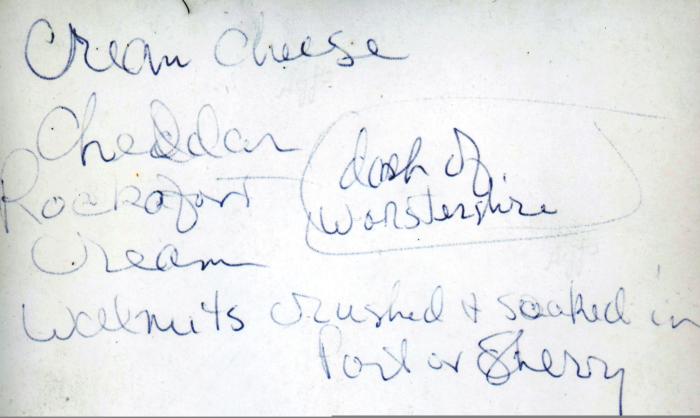 Cream Cheese
Cheddar
dash of
Rockafort
Worstershire
Cream
Wallnuts crushed + soaked in
Port or Sherry